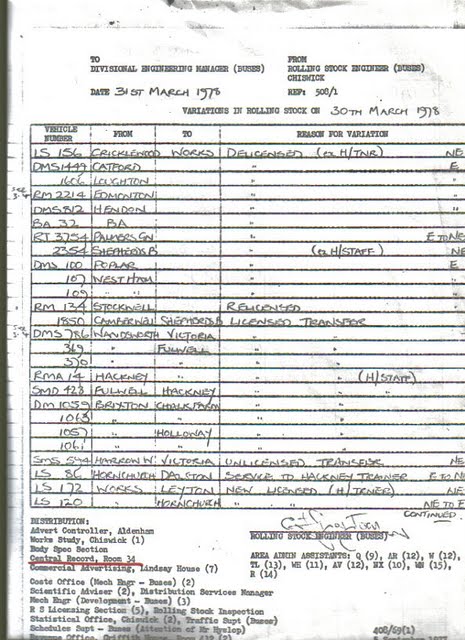 TO FROM
DIVISIONAL ENGINEERING MANAGER (BUSES) ROLLING STOCK ENGINEER (BUSES)
CHISWICK
DATE 31ST MARCH 1978 REF: 508/1
VARIATIONS IN ROLLING STOCK ON 30TH MARCH 1978
VEHICLE NUMBER FROM TO REASON FOR VARIATION
LS 156 CRICKLEWOOD WORKS DELICENSED (ex H/TNR) NE
DMS 1449 CATFORD " E
1606 LOUGHTON " "
RM 2214 EDMONTON " "
DMS 812 HENDON " "
BA 32 BA " "
RT 3754 PALMERS GN " E TO NE
2354 SHEPHERDS B " (ex H/STAFF) NE
DMS 100 POPLAR " E
107 WEST HAM " "
109 " " " "
RM 134 STOCKWELL RELICENSED "
1850 CAMBERWELL SHEPHERDS B LICENSED TRANSFER "
DMS 786 WANDSWORTH VICTORIA " " "
369 " FULWELL " " "
370 " " " " "
RMA 14 HACKNEY " (H/STAFF) "
SMD 428 FULWELL HACKNEY " " "
DM 1059 BRIXTON CHALK FARM " " "
1063 " " " " "
1057 " HOLLOWAY " " "
1061 " " " " "
SMS 594 HARROW W. VICTORIA UNLICENSED TRANSFER NE
LS 86 HORNCHURCH DALSTON SERVICE TO HACKNEY TRAINER E TO NE
LS 172 WORKS LEYTON NEW LICENSED (H/TRNER) NE
LS 120 " HORNCHURCH " " NE TO E
CONTINUED
DISTRIBUTION:
Advert Controller, Aldenham
Works Study, Chiswick (1)
Body Spec Section
Central Record, Room 34
Commercial Advertising, Lindsay House (7)
Costs Office (Mech Engr - Buses) (2)
Scientific Adviser (2), Distribution Services Manager
Mech Engr (Development - Buses) (3)
R S Licensing Section (5), Rolling Stock Inspection
Statistical Office, Chiswick (2), Traffic Supt (Buses)
Schedules Supt - Buses (Attention of Mr Hyslop)
ROLLING STOCK ENGINEER (BUSES)
AREA ADMIN ASSISTANTS: Q (9), AR (12), W (12),
TL (13), WH (11), AV (12), NX (10), WN (15),
R (14)
408/59(1)